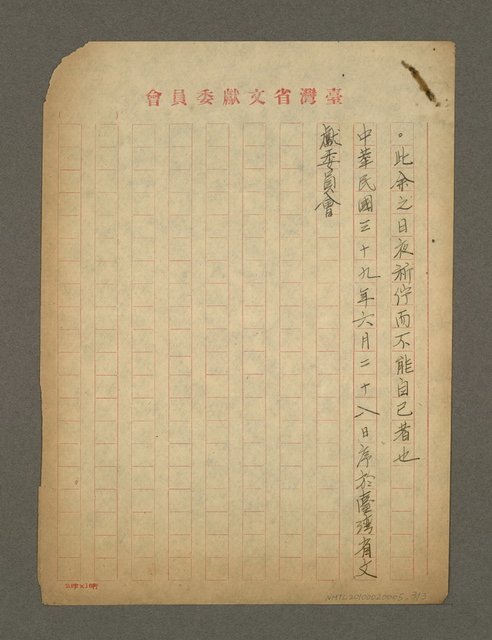 臺灣省文獻委員會
。此余之日夜祈佇而不能自已者也
中華民國三十九年六月二十八日序於臺灣省文
獻委員會
NMTL20100020005
313